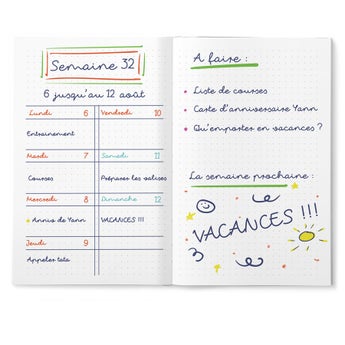 Semaine 32
6 jusqu'au 12 août
Lundi 6
Entrainement
Mardi 7
Courses
Mercredi 8
Anniv de Yann
Jeudi 9
Appeler tata
Vendredi 10
Samedi 11
Préparer les valises
Dimanche 12
VACANCES !!!
A faire :
Liste de courses
Carte d'anniversaire Yann
Qu'emporter en vacances ?
La semaine prochaine :
VACANCES !!!